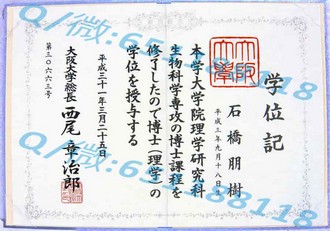 学位記
石橋朋樹
平成三年九月十八日生
本学大学院理学研究科
生物科学専攻の博士課程を
修了したので博士(理学)の
学位を授与する
平成三十一年三月二十五日
大阪大学総長 西尾章治郎
第三〇六六三号
Q/微: